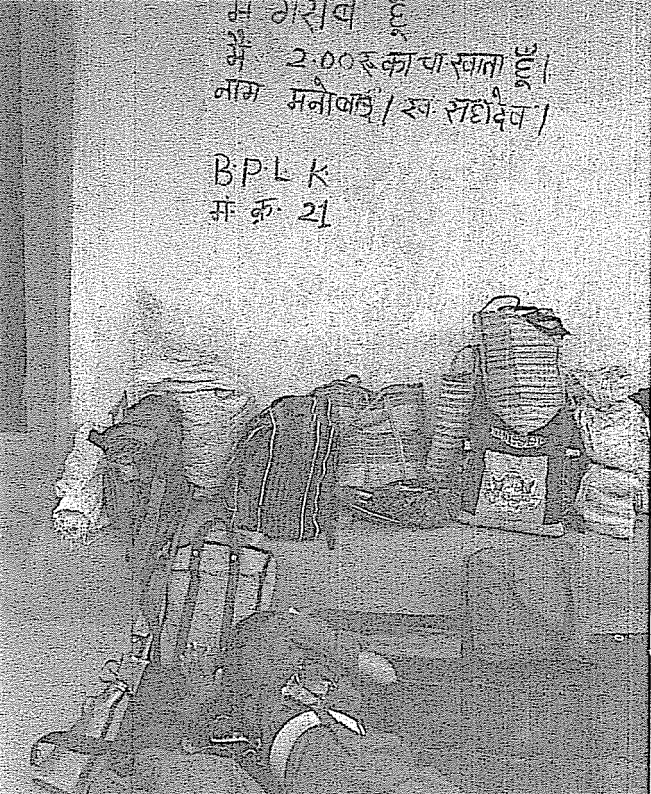 मैं गरीब हूँ
मैं 2.00 रू का चा खाता हूँ।
नाम मनोबाई / स्व. सहदेव /
B.P.L K.
म. क्र. 21